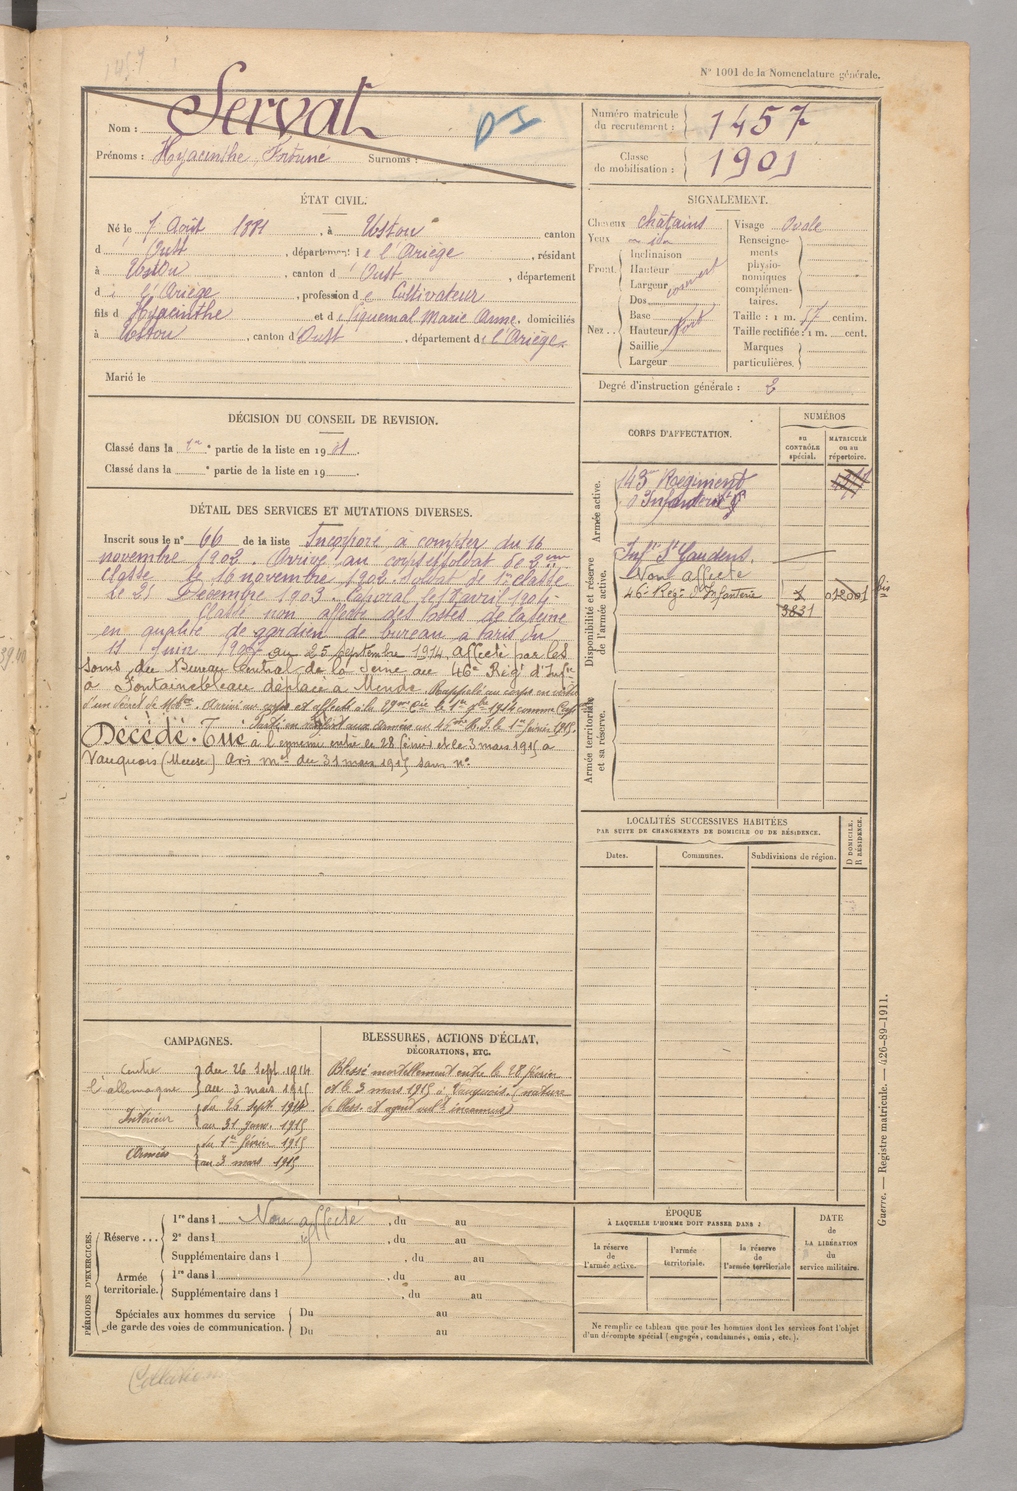 N° 1001 de la Nomenclature générale.
Nom : Servat
DI
Prénoms : Hyacinthe Fortuné Surnoms :
Numéro matricule du recrutement : 1457
Classe de mobilisation : 1901
ÉTAT CIVIL.
Né le 7 Août 1881, à Ustou canton
d' Oust, département de l'Ariège, résidant
à Ustou, canton d' Oust, département
de l'Ariège, profession de Cultivateur
fils d' Hyacinthe et de Siquemal Marie Anne, domiciliés
à Ustou, canton d' Oust, département de l'Ariège.
Marié le
SIGNALEMENT.
Cheveux châtains
Yeux
Front. Inclinaison
Hauteur
Largeur couvert
Nez .. Dos
Base
Hauteur fort
Saillie
Largeur
Visage Ovale
Renseignements physionomiques complémentaires.
Taille : 1 m. 57 centim.
Taille rectifiée : 1 m. cent.
Marques particulières.
Degré d'instruction générale : 2
DÉCISION DU CONSEIL DE REVISION.
Classé dans la 1re partie de la liste en 1901.
Classé dans la ° partie de la liste en 19 .
DÉTAIL DES SERVICES ET MUTATIONS DIVERSES.
Inscrit sous le n° 66 de la liste Incorporé à compter du 16
novembre 1902. Arrivé au corps et soldat de 2ème
classe le 16 novembre 1902. Soldat de 1re classe
le 25 Décembre 1903. Caporal le 17 avril 1904.
Classé non affecté des Postes de la Seine
en qualité de gardien de bureau à Paris du
11 Juin 1907 au 25 septembre 1914 affecté par les
soins du Bureau Central de la Seine au 46e Régt d'Infie
à Fontainebleau déplacé à Mende. Rappelé au corps en vertu
d'un décret de Mobon. Arrivé au corps et affecté à la 29me Cie le 1914 comme
Parti en renfort aux armées au 46me R.I. le 1er février 1915.
Décédé. Tué à l'ennemi entre le 28 février et le 3 mars 1915 à
Vauquois (Meuse) Avis mel du 31 mars 1915 sans n°
CORPS D'AFFECTATION.
NUMÉROS
au CONTRÔLE spécial.
MATRICULE ou au répertoire.
Armée active.
143e Régiment
d'Infanterie
Disponibilité et réserve de l'armée active.
Infie St Gaudens.
Non affecté
46e Régt d'Infanterie 012001 bis
3831
Armée territoriale et sa réserve.
LOCALITÉS SUCCESSIVES HABITÉES
PAR SUITE DE CHANGEMENTS DE DOMICILE OU DE RÉSIDENCE.
Dates.
Communes.
Subdivisions de région.
D DOMICILE. R RÉSIDENCE.
CAMPAGNES.
Contre l'allemagne du 26 Sept. 1914
au 3 mars 1915
Intérieur du 26 Sept 1914
au 31 janv. 1915
Armées du 1er février 1915
au 3 mars 1915
BLESSURES, ACTIONS D'ÉCLAT,
DÉCORATIONS, ETC.
Blessé mortellement entre le 28 février
et le 3 mars 1915 à Vauquois. (nature
de bless. et agent inconnus)
PÉRIODES D'EXERCICES.
Réserve ... 1re dans l Non affecté, du au
2e dans l , du au
Supplémentaire dans l , du au
Armée territoriale. 1re dans l , du au
Supplémentaire dans l , du au
Spéciales aux hommes du service de garde des voies de communication. Du au
Du au
ÉPOQUE
À LAQUELLE L'HOMME DOIT PASSER DANS :
la réserve de l'armée active.
l'armée territoriale.
la réserve de l'armée territoriale
DATE de LA LIBÉRATION du service militaire.
Ne remplir ce tableau que pour les hommes dont les services font l'objet
d'un décompte spécial (engagés, condamnés, omis, etc.).
Guerre. — Registre matricule. — 426-89-1911.